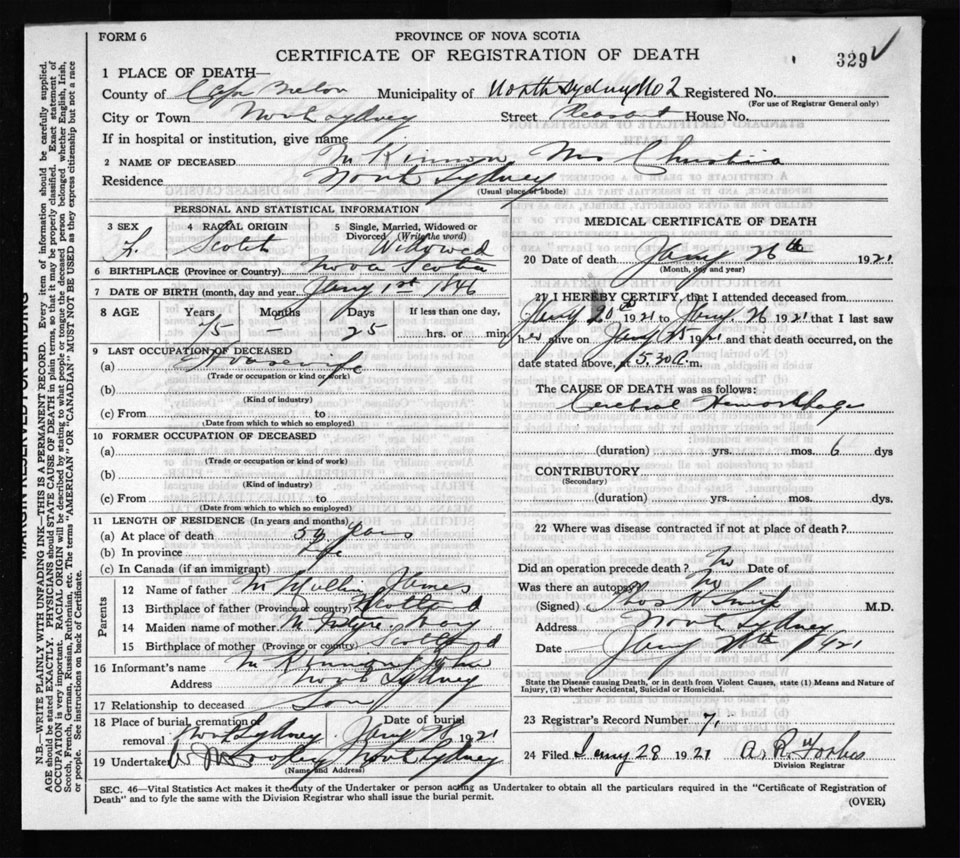 FORM 6
PROVINCE OF NOVA SCOTIA
CERTIFICATE OF REGISTRATION OF DEATH
329
1 PLACE OF DEATH—
County of Cape Breton Municipality of North Sydney No 2 Registered No.
(For use of Registrar General only)
City or Town North Sydney Street Pleasant House No.
If in hospital or institution, give name
2 NAME OF DECEASED McKinnon Mrs Christina
Residence North Sydney
(Usual place of abode)
PERSONAL AND STATISTICAL INFORMATION
3 SEX 4 RACIAL ORIGIN 5 Single, Married, Widowed or Divorced (Write the word)
F. Scotch Widowed
6 BIRTHPLACE (Province or Country) Nova Scotia
7 DATE OF BIRTH (month, day and year) Jany 1st 1846
8 AGE Years Months Days If less than one day,
75 — 25 hrs. or min.
9 LAST OCCUPATION OF DECEASED
(a) Housewife
(Trade or occupation or kind of work)
(b)
(Kind of industry)
(c) From to
(Date from which to which so employed)
10 FORMER OCCUPATION OF DECEASED
(a)
(Trade or occupation or kind of work)
(b)
(Kind of industry)
(c) From to
(Date from which to which so employed)
11 LENGTH OF RESIDENCE (In years and months)
(a) At place of death years
(b) In province Life
(c) In Canada (if an immigrant)
Parents
12 Name of father James
13 Birthplace of father (Province or country) Scotland
14 Maiden name of mother McIntyre Mary
15 Birthplace of mother (Province or country) Scotland
16 Informant's name McKinnon John
Address North Sydney
17 Relationship to deceased Son
18 Place of burial, cremation or removal North Sydney Date of burial Jany 28 1921
19 Undertaker North Sydney
(Name and Address)
MEDICAL CERTIFICATE OF DEATH
20 Date of death Jany 26th 1921
(Month, day and year)
21 I HEREBY CERTIFY, that I attended deceased from
Jany 20th 1921 to Jany 26 1921 that I last saw
her alive on Jany 25 1921 and that death occurred, on the
date stated above, at 5.30 a.m.
The CAUSE OF DEATH was as follows:
Cerebral Hemorrhage
(duration) yrs. mos. 6 dys
CONTRIBUTORY
(Secondary)
(duration) yrs. mos. dys.
22 Where was disease contracted if not at place of death?
Did an operation precede death? No Date of
Was there an autopsy? No
(Signed) M.D.
Address North Sydney
Date Jany 1921
State the Disease causing Death, or in death from Violent Causes, state (1) Means and Nature of
Injury, (2) whether Accidental, Suicidal or Homicidal.
23 Registrar's Record Number 7.
24 Filed Jany 28 1921 A. R. Forbes
Division Registrar
SEC. 46—Vital Statistics Act makes it the duty of the Undertaker or person acting as Undertaker to obtain all the particulars required in the "Certificate of Registration of
Death" and to fyle the same with the Division Registrar who shall issue the burial permit.
(OVER)
MARGIN RESERVED FOR BINDING
N.B.—WRITE PLAINLY WITH UNFADING INK—THIS IS A PERMANENT RECORD. Every item of information should be carefully supplied.
AGE should be stated EXACTLY. PHYSICIANS should STATE CAUSE OF DEATH in plain terms, so that it may be properly classified. Exact statement of
OCCUPATION is very important. RACIAL ORIGIN will be described by stating to what people or tongue the deceased person belonged whether English, Irish,
Scotch, French, German, Russian, Ruthenian, etc. The terms "AMERICAN" OR "CANADIAN" MUST NOT BE USED as they express citizenship but not a race
or people. See instructions on back of Certificate.